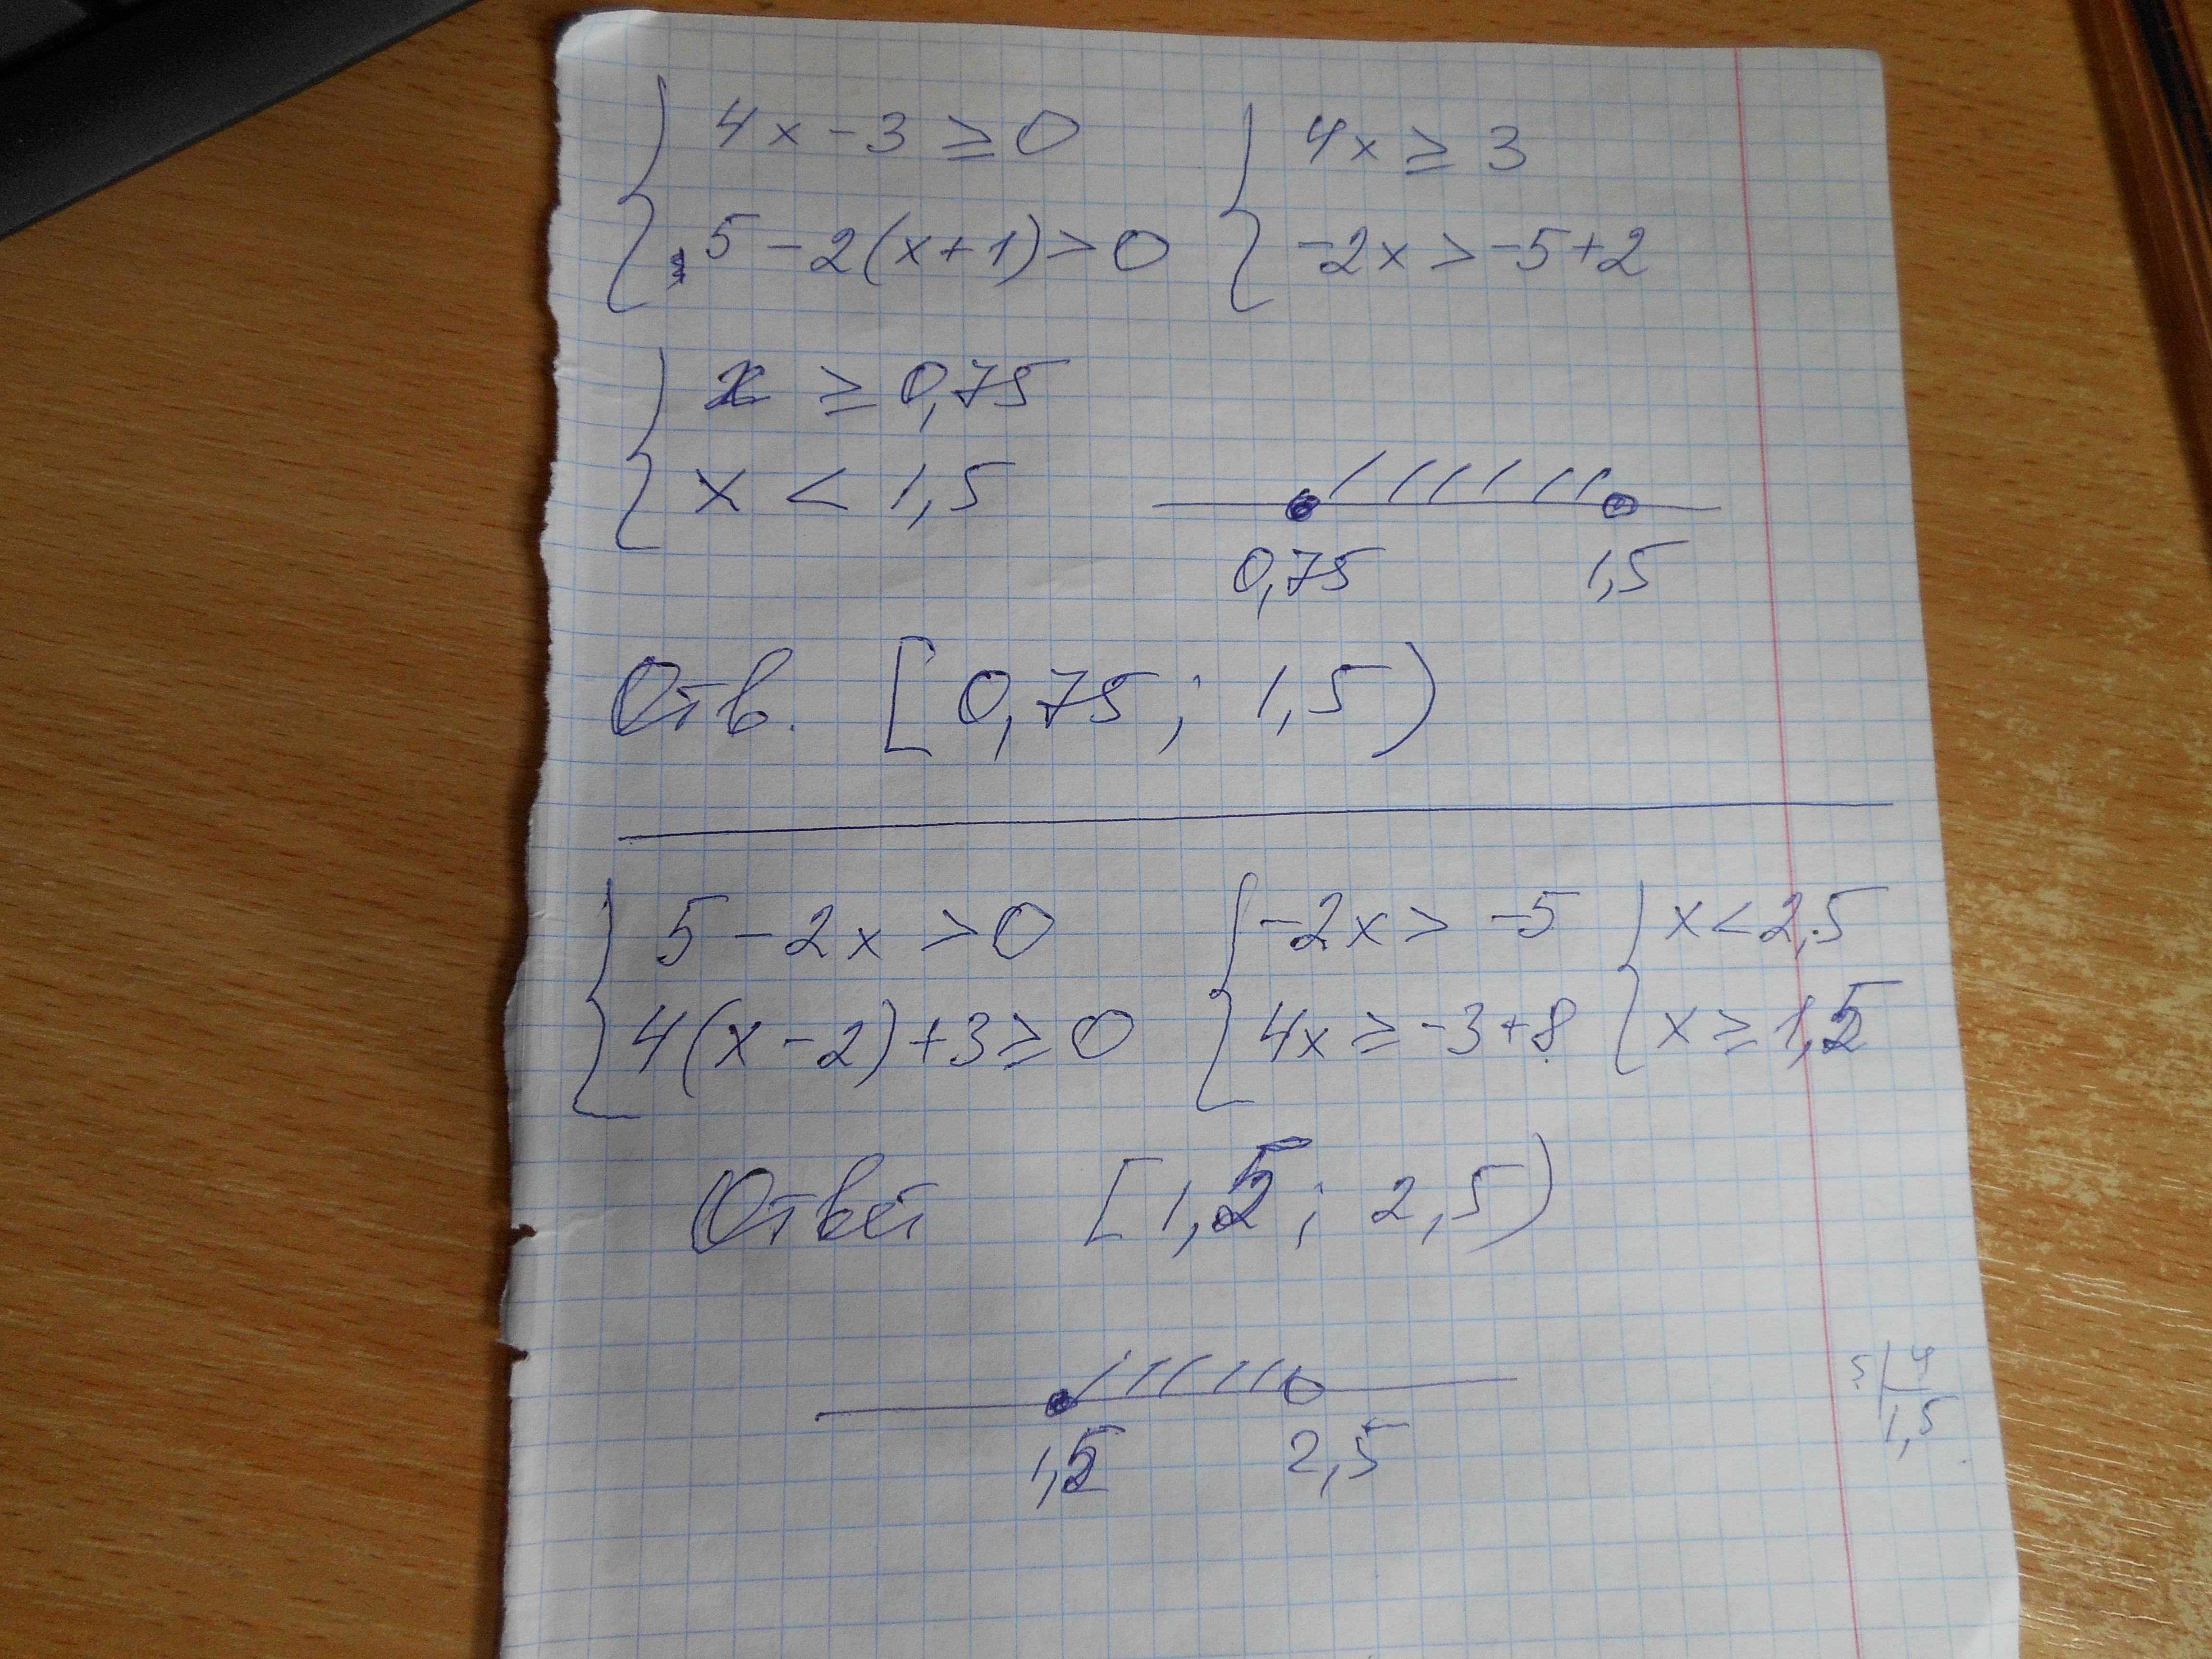 4x - 3 ≥ 0
5 - 2(x+1) > 0
4x ≥ 3
-2x > -5+2
x ≥ 0,75
x < 1,5
0,75 1,5
Отв. [0,75; 1,5)
5 - 2x > 0
4(x-2)+3 ≥ 0
-2x > -5
4x ≥ -3+8
x < 2,5
x ≥ 1,5
Ответ [1,5; 2,5)
1,5 2,5
5 4
1,5